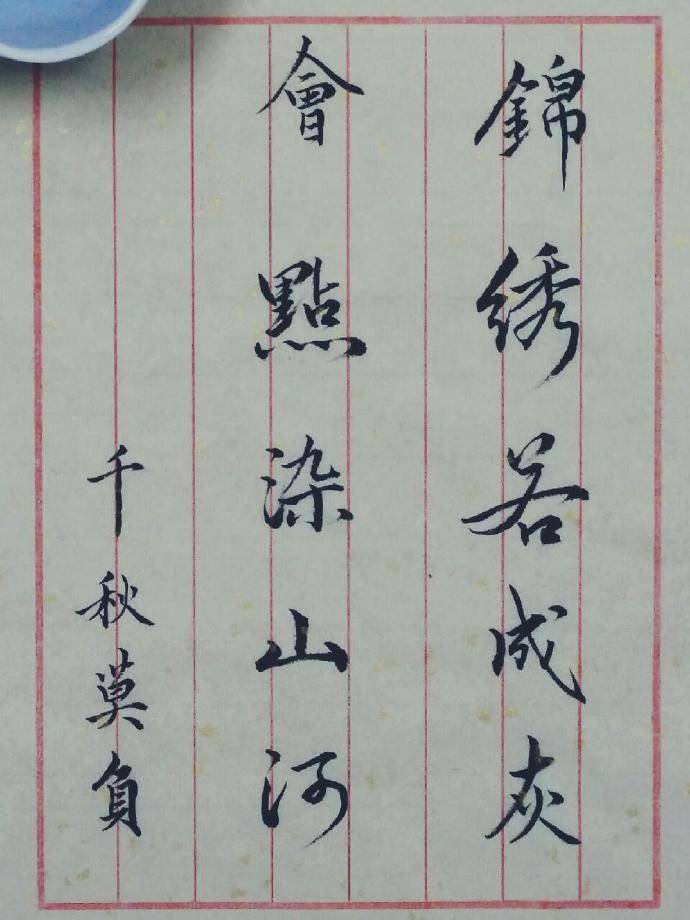 錦绣若成灰
會點染山河
千秋莫負